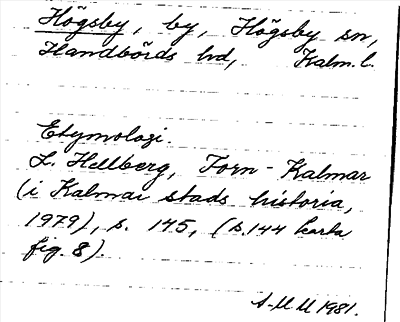 Högsby, by, Högsby sn,
Handbörds hd, Kalm. l.
Etymologi.
L. Hellberg, Forn-Kalmar
(i Kalmar stads historia,
1979), s. 145, (s. 144 karta
fig. 8).
S-M M 1981.